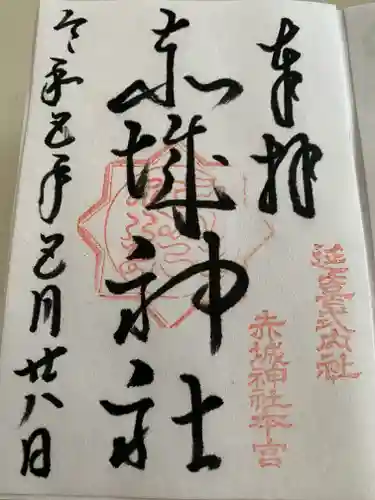 奉拝
延喜式内社
赤城神社本宮
赤城神社
令和五年五月廿八日